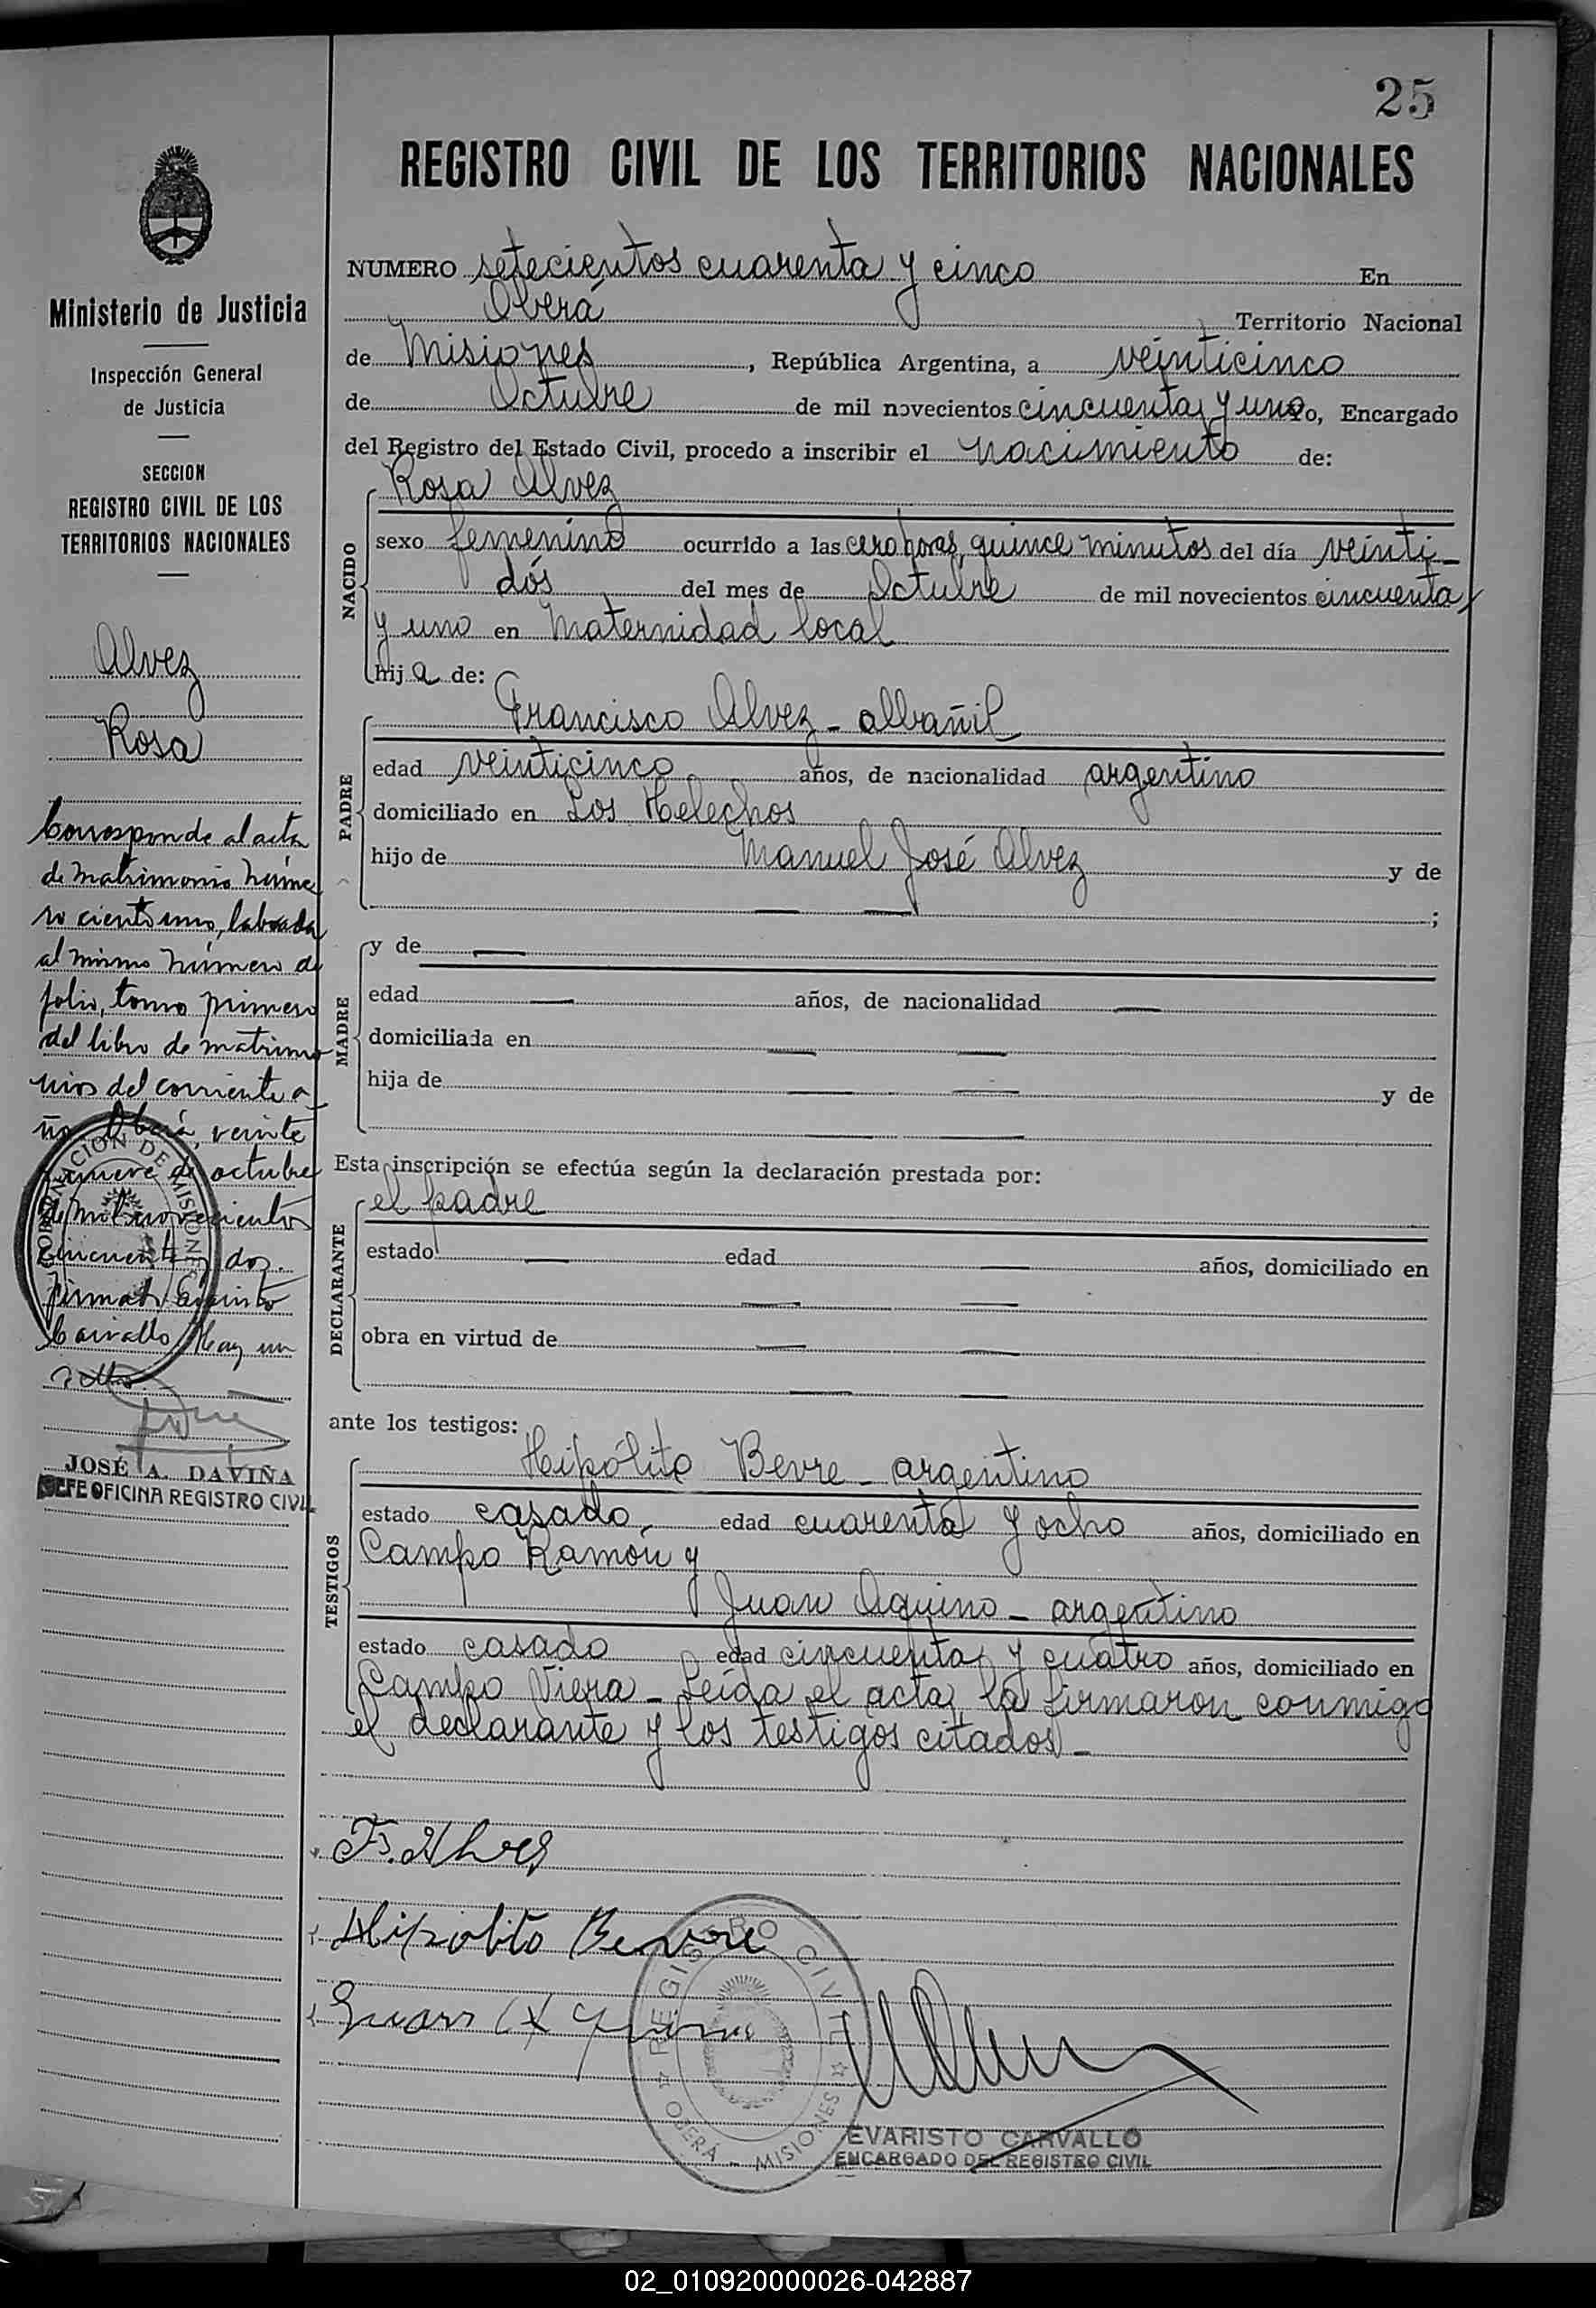 25
REGISTRO CIVIL DE LOS TERRITORIOS NACIONALES
NUMERO setecientos cuarenta y cinco En
Oberá Territorio Nacional
de Misiones, República Argentina, a veinticinco
de Octubre de mil novecientos cincuenta y uno Yo, Encargado
del Registro del Estado Civil, procedo a inscribir el nacimiento de:
NACIDO
Rosa Alvez
sexo femenino ocurrido a las cero horas, quince minutos del día veinti-
dós del mes de Octubre de mil novecientos cincuenta
y uno en Maternidad local
hija de:
PADRE
Francisco Alvez - albañil
edad veinticinco años, de nacionalidad argentino
domiciliado en Los Helechos
hijo de Manuel José Alvez y de
;
MADRE
y de
edad años, de nacionalidad
domiciliada en
hija de y de
Esta inscripción se efectúa según la declaración prestada por:
DECLARANTE
el padre
estado edad años, domiciliado en
obra en virtud de
ante los testigos:
TESTIGOS
Hipólito Bevre - argentino
estado casado, edad cuarenta y ocho años, domiciliado en
Campo Ramon y
Juan Aquino - argentino
estado casado edad cincuenta y cuatro años, domiciliado en
Campo Viera - Leída el acta, la firmaron conmigo
el declarante y los testigos citados -
F. Alves
Hipolito Bevre
Juan Aquino
REGISTRO CIVIL
OBERÁ - MISIONES
EVARISTO CARVALLO
ENCARGADO DEL REGISTRO CIVIL
Ministerio de Justicia
Inspección General
de Justicia
SECCION
REGISTRO CIVIL DE LOS
TERRITORIOS NACIONALES
Alvez
Rosa
Corresponde al acta
de matrimonio núme
ro ciento uno, labrada
al mismo número de
folio, tomo primero
del libro de matrimo
nios del corriente a-
ño. Oberá, veinte
nueve de octubre
de mil novecientos
cincuenta y dos.
firmado Evaristo
Carvallo Hay un
sello.
GOBERNACION DE MISIONES
JOSÉ A. DAVIÑA
JEFE OFICINA REGISTRO CIVIL
02_010920000026-042887